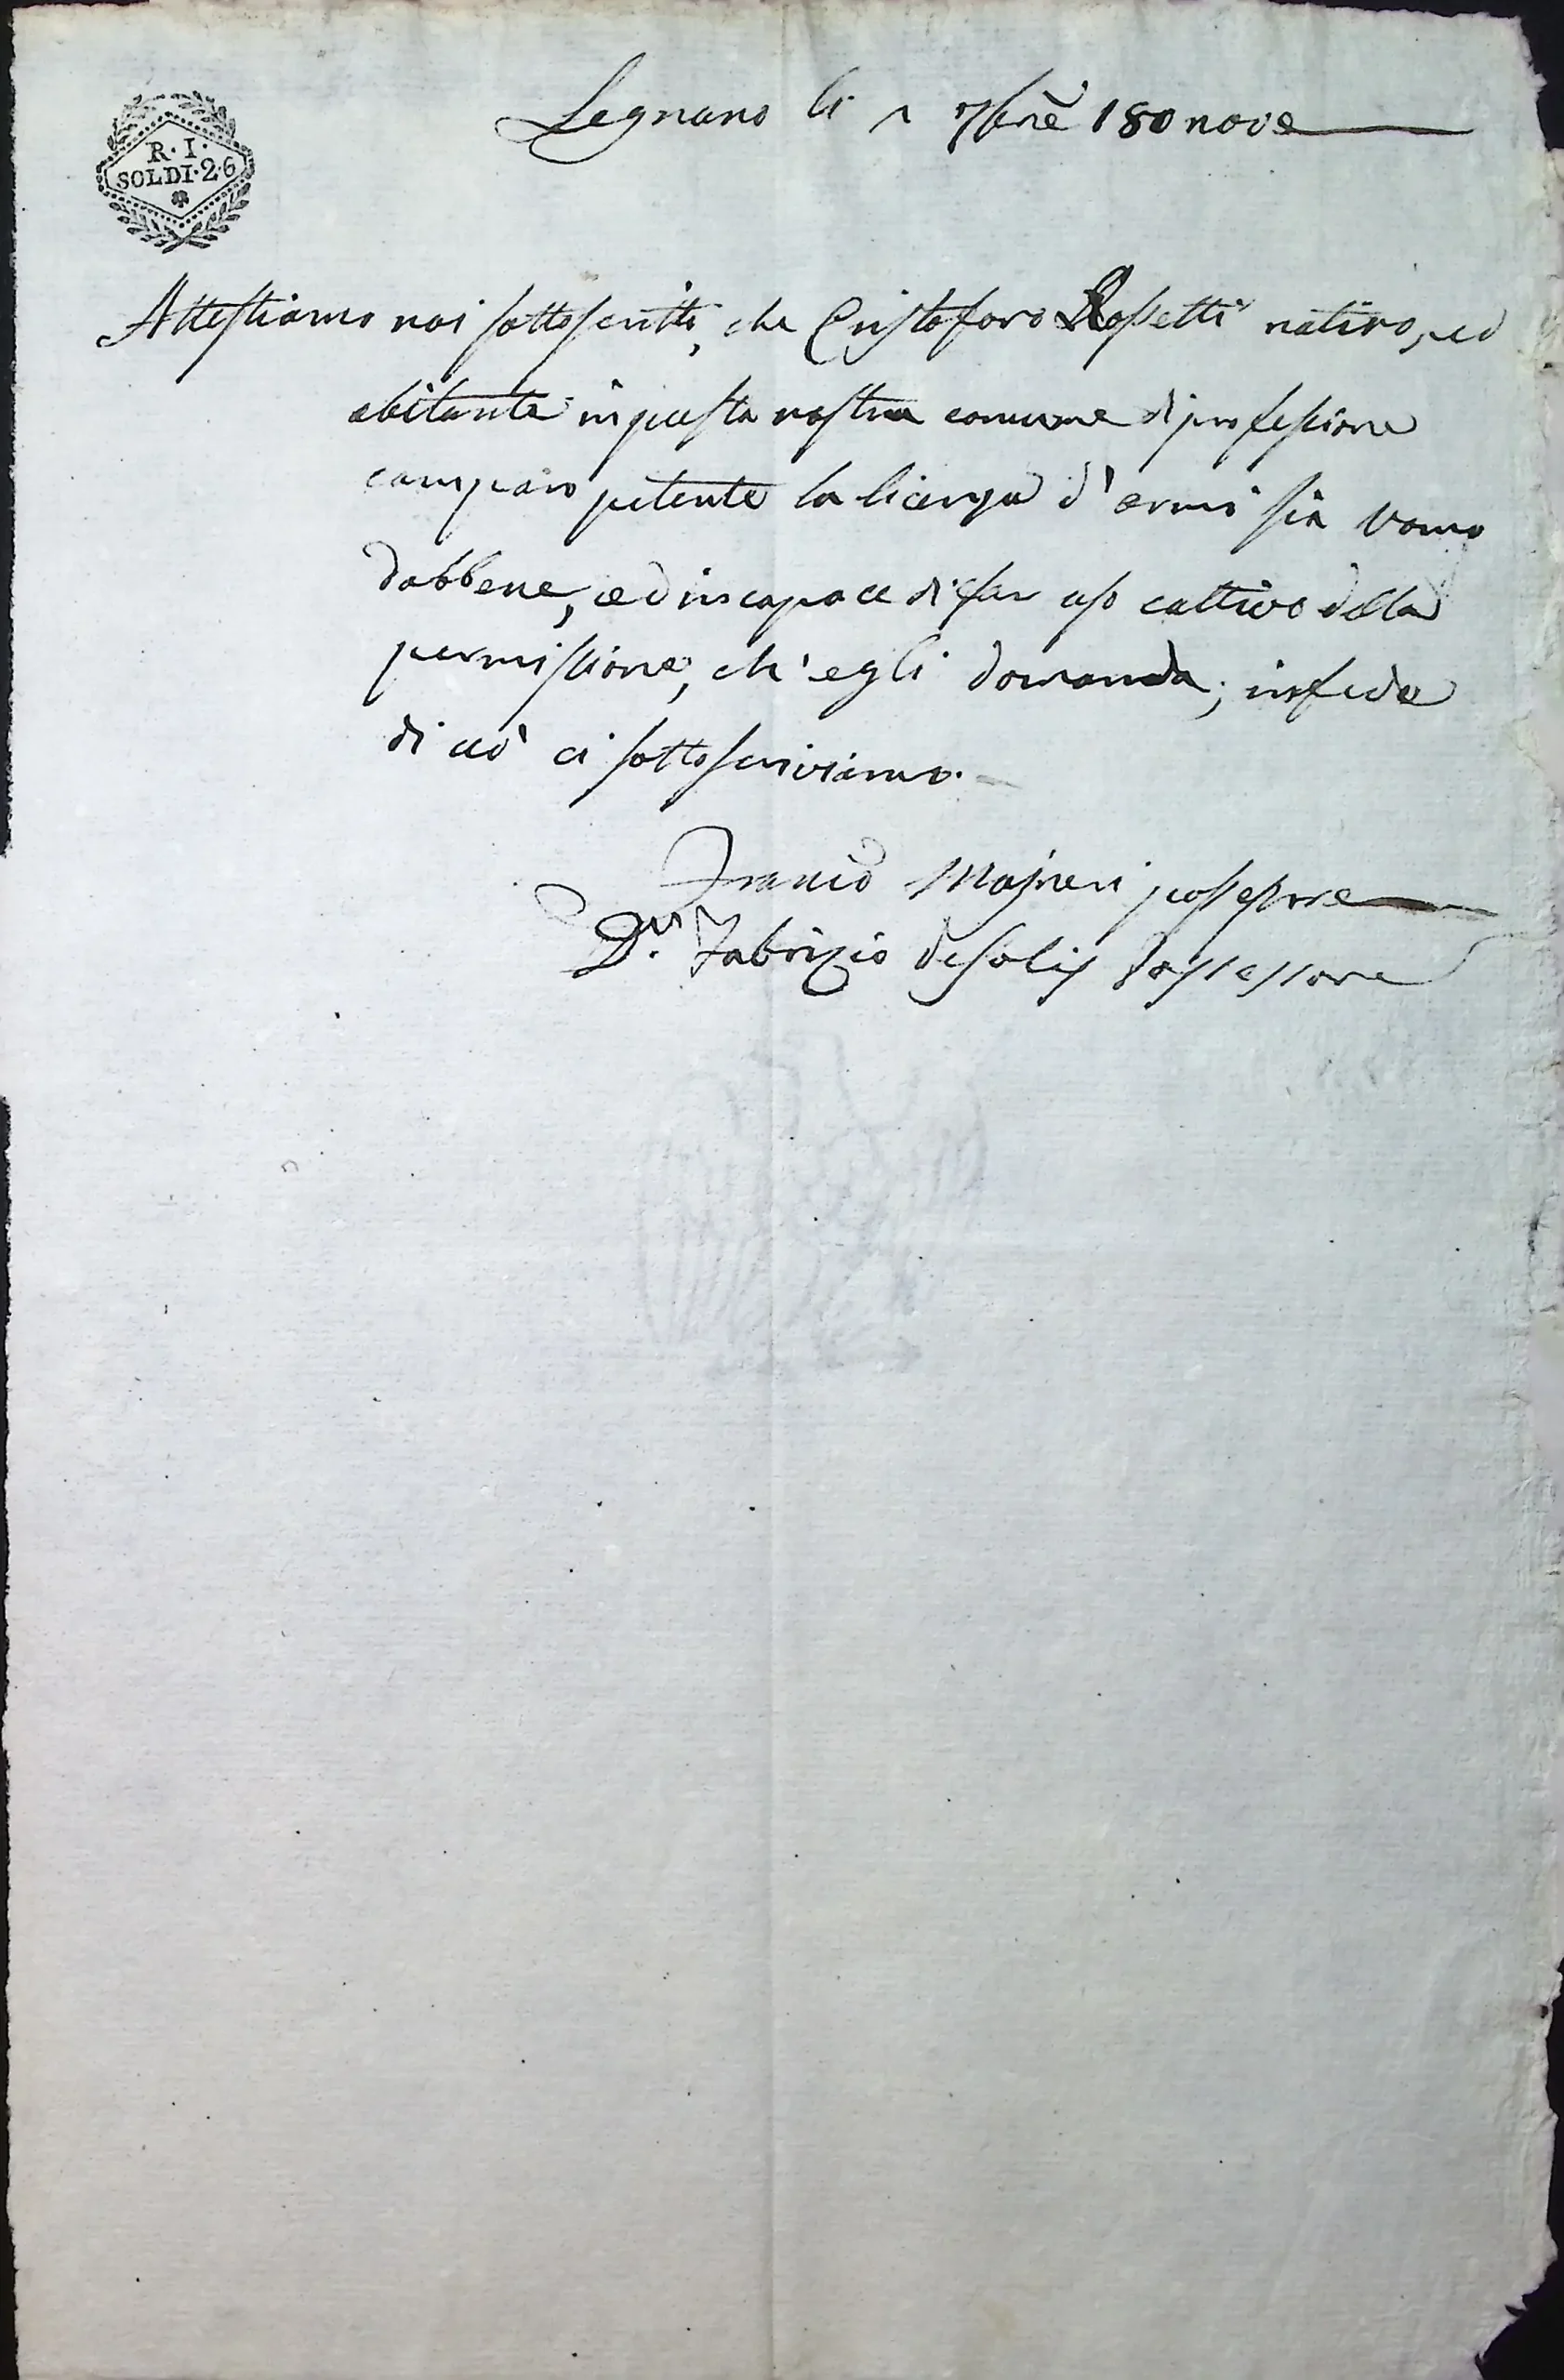 R·I·
SOLDI·26
Legnano li 1 7brē 180nove
Attestiamo noi sottoscritti, che Cristoforo Rossetti nativo, ed
abitante in questa nostra comune di professione
camparo petente la licenza d'armi sia Uomo
dabbene, ed incapace di far uso cattivo della
permissione, ch'egli domanda; in fede
di ciò ci sottoscriviamo.
possessore
D.n Fabrizio Desolis Possessore